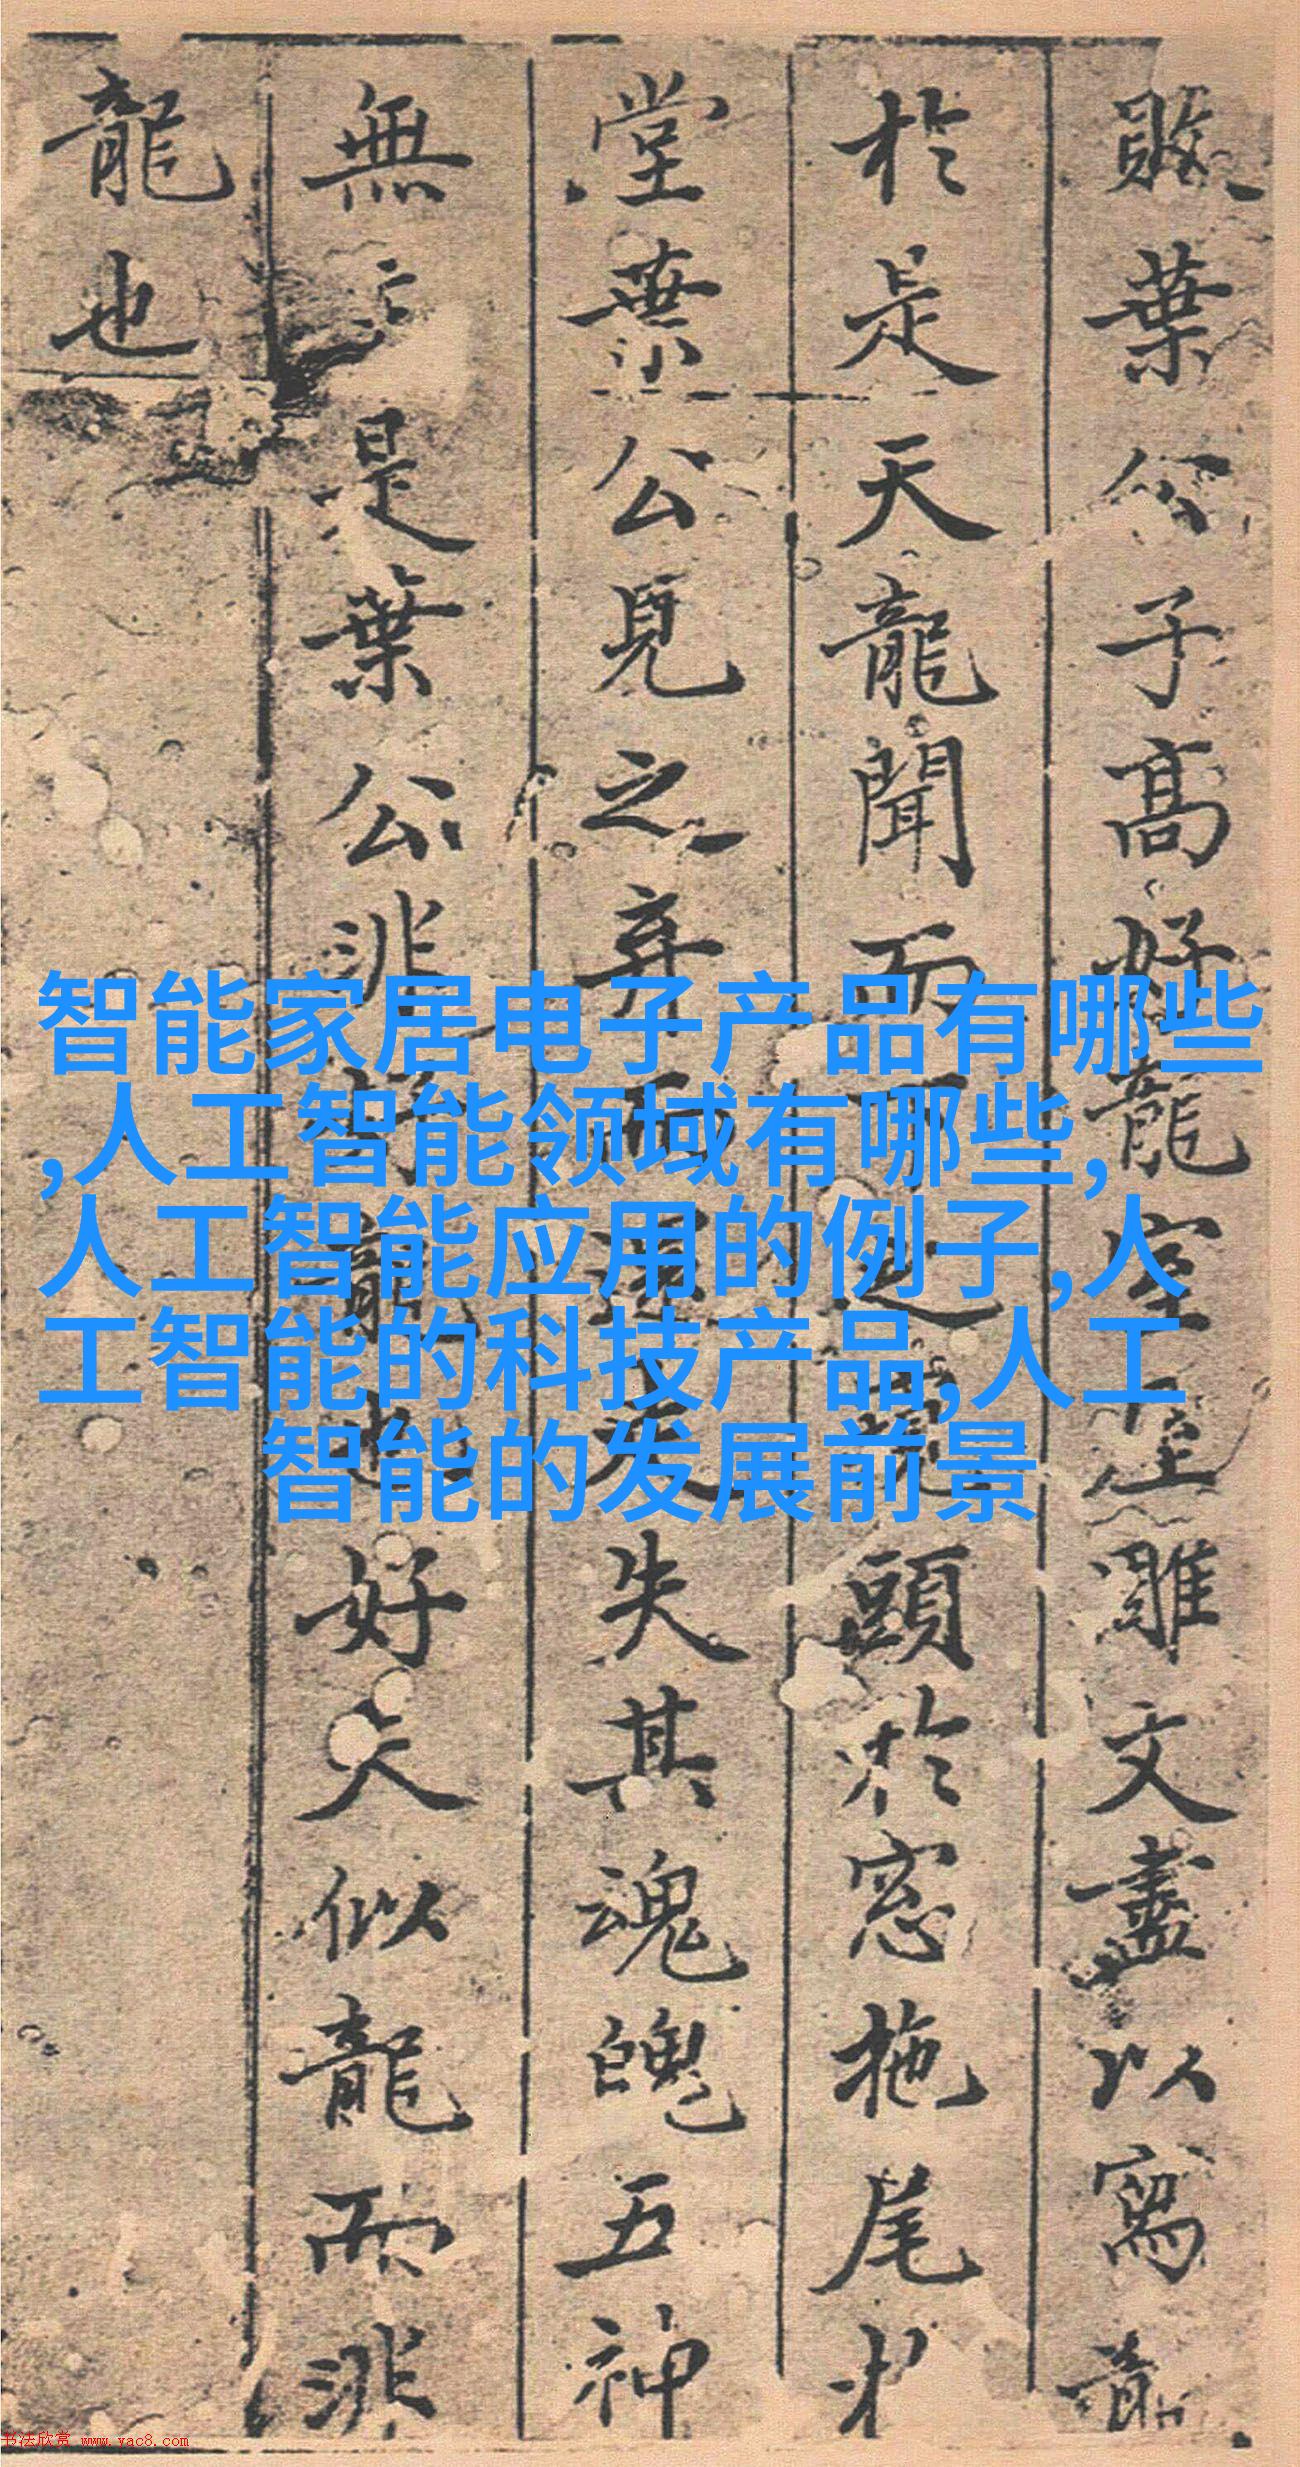 敗葉公子高好龍室雕文盡以寫龍
於是天龍聞而下之窺頭於窓拖尾
堂葉公見之弃而還走失其魂魄五神
無主是葉公非好龍也好夫似龍而非
龍也
智能家居电子产品有哪些
,人工智能领域有哪些,
人工智能应用的例子,人
工智能的科技产品,人工
智能的发展前景
书法欣赏 www.yac8.com